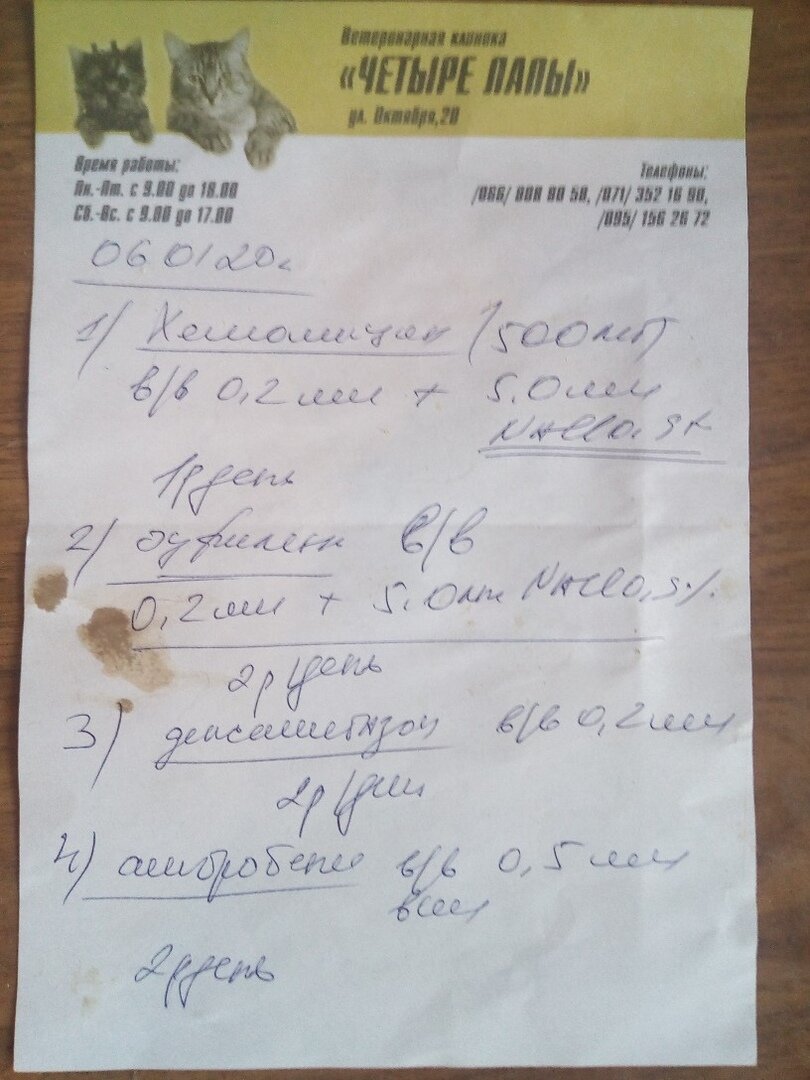 Ветеринарная клиника
«ЧЕТЫРЕ ЛАПЫ»
ул. Октября, 20
Время работы:
Пн.-Пт. с 9.00 до 18.00
Сб.-Вс. с 9.00 до 17.00
Телефоны:
/071/ 352 16 90,
/095/ 156 26 72
06 01 20г
1) Хемомицин (500мг)
в/в 0,2 мл + 5.0 мл
NaCl 0,9%
1р день
2) эуфилин в/в
0,2 мл + 5,0 мл NaCl 0,9%
2р/день
3) дексаметазон в/в 0,2 мл
2р/дн
4) амбробене в/в 0,5 мл
2р день